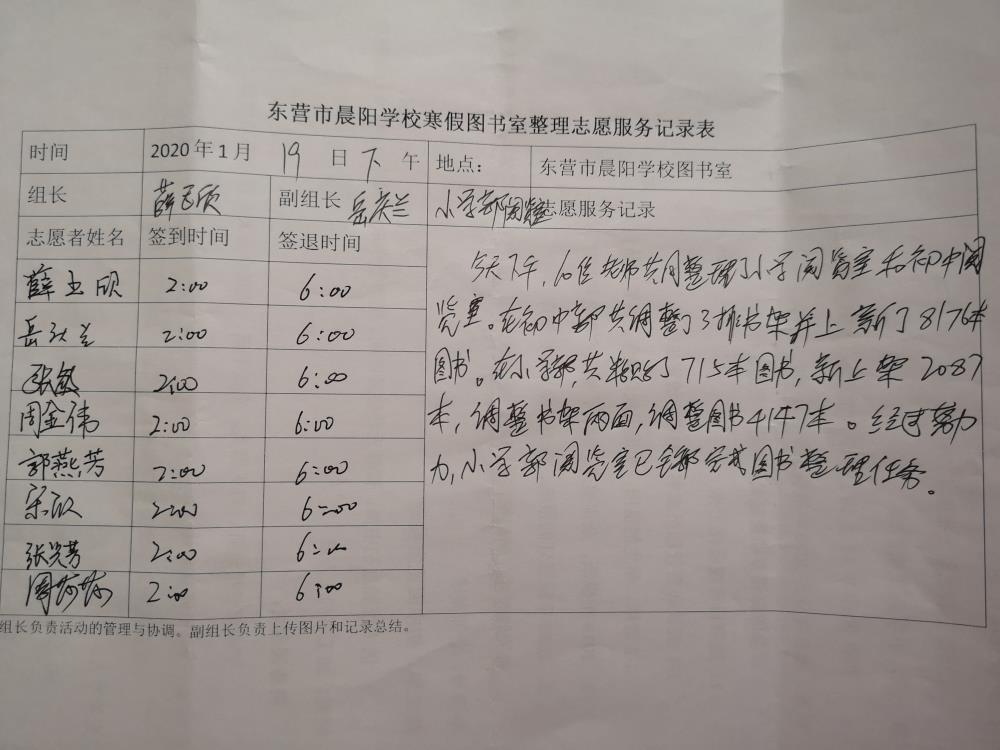 东营市晨阳学校寒假图书室整理志愿服务记录表
时间 2020年1月 19 日 下 午 地点： 东营市晨阳学校图书室
组长 薛玉欣 副组长 岳庆兰 小学部阅览室 志愿服务记录
志愿者姓名 签到时间 签退时间
薛玉欣 2:00 6:00
岳庆兰 2:00 6:00
张敏 2:00 6:00
周金伟 2:00 6:00
郭燕芳 2:00 6:00
宋欣 2:00 6:00
张兴芳 2:00 6:00
周莎莎 2:00 6:00
今天下午，10位老师共同整理了小学阅览室和初中阅
览室。在初中部共调整了3排书架并上新了8176本
图书。在小学部，共粘贴了715本图书，新上架2087
本，调整书架两面，调整图书4147本。经过努力
力，小学部阅览室已全部完成图书整理任务。
组长负责活动的管理与协调。副组长负责上传图片和记录总结。